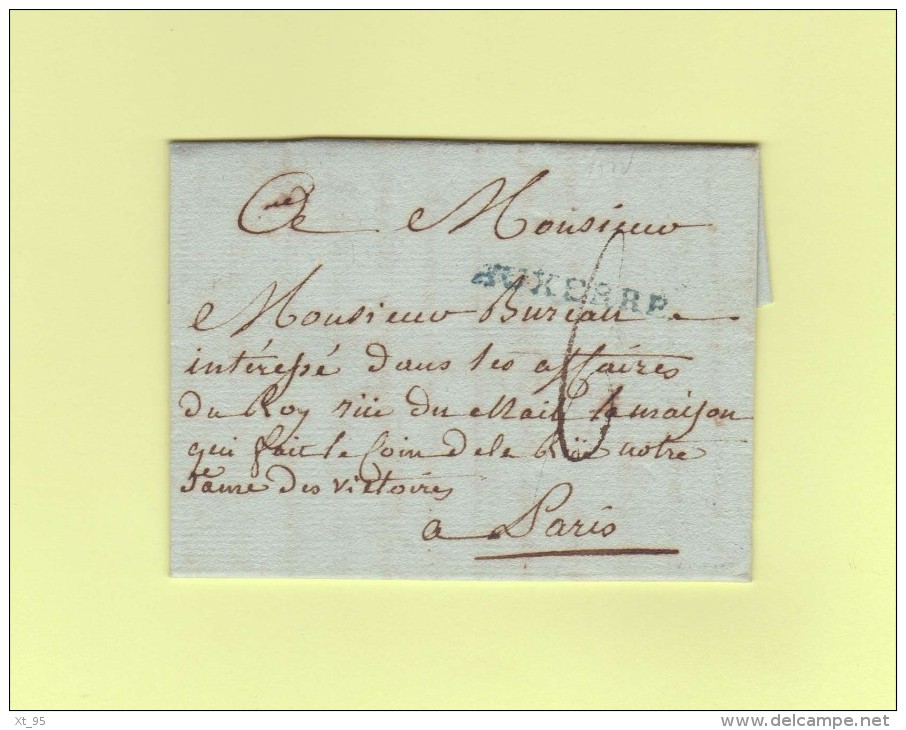 A Monsieur
AUXERRE
Monsieur Bureau
intéressé dans les affaires
du Roy rüe du Mail la maison
qui fait le Coin de la Rüe notre
Dame des victoires
a Paris
6
Xt_95
delcampe.net